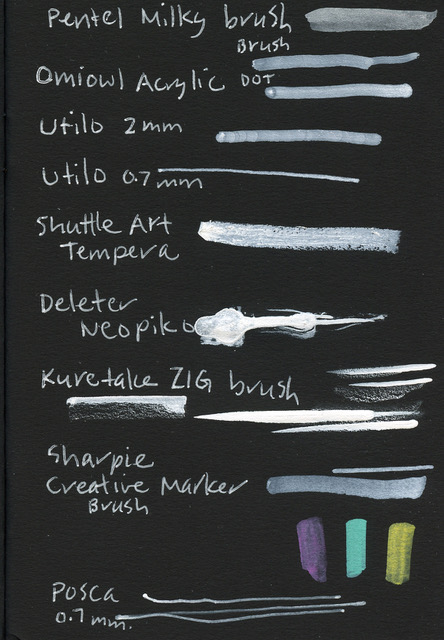 Pentel Milky brush
Brush
Omiowl Acrylic DOT
Utilo 2mm
Utilo 0.7mm
Shuttle Art
Tempera
Deleter
Neopiko
Kuretake ZIG brush
Sharpie
Creative Marker
Brush
Posca
0.7mm.